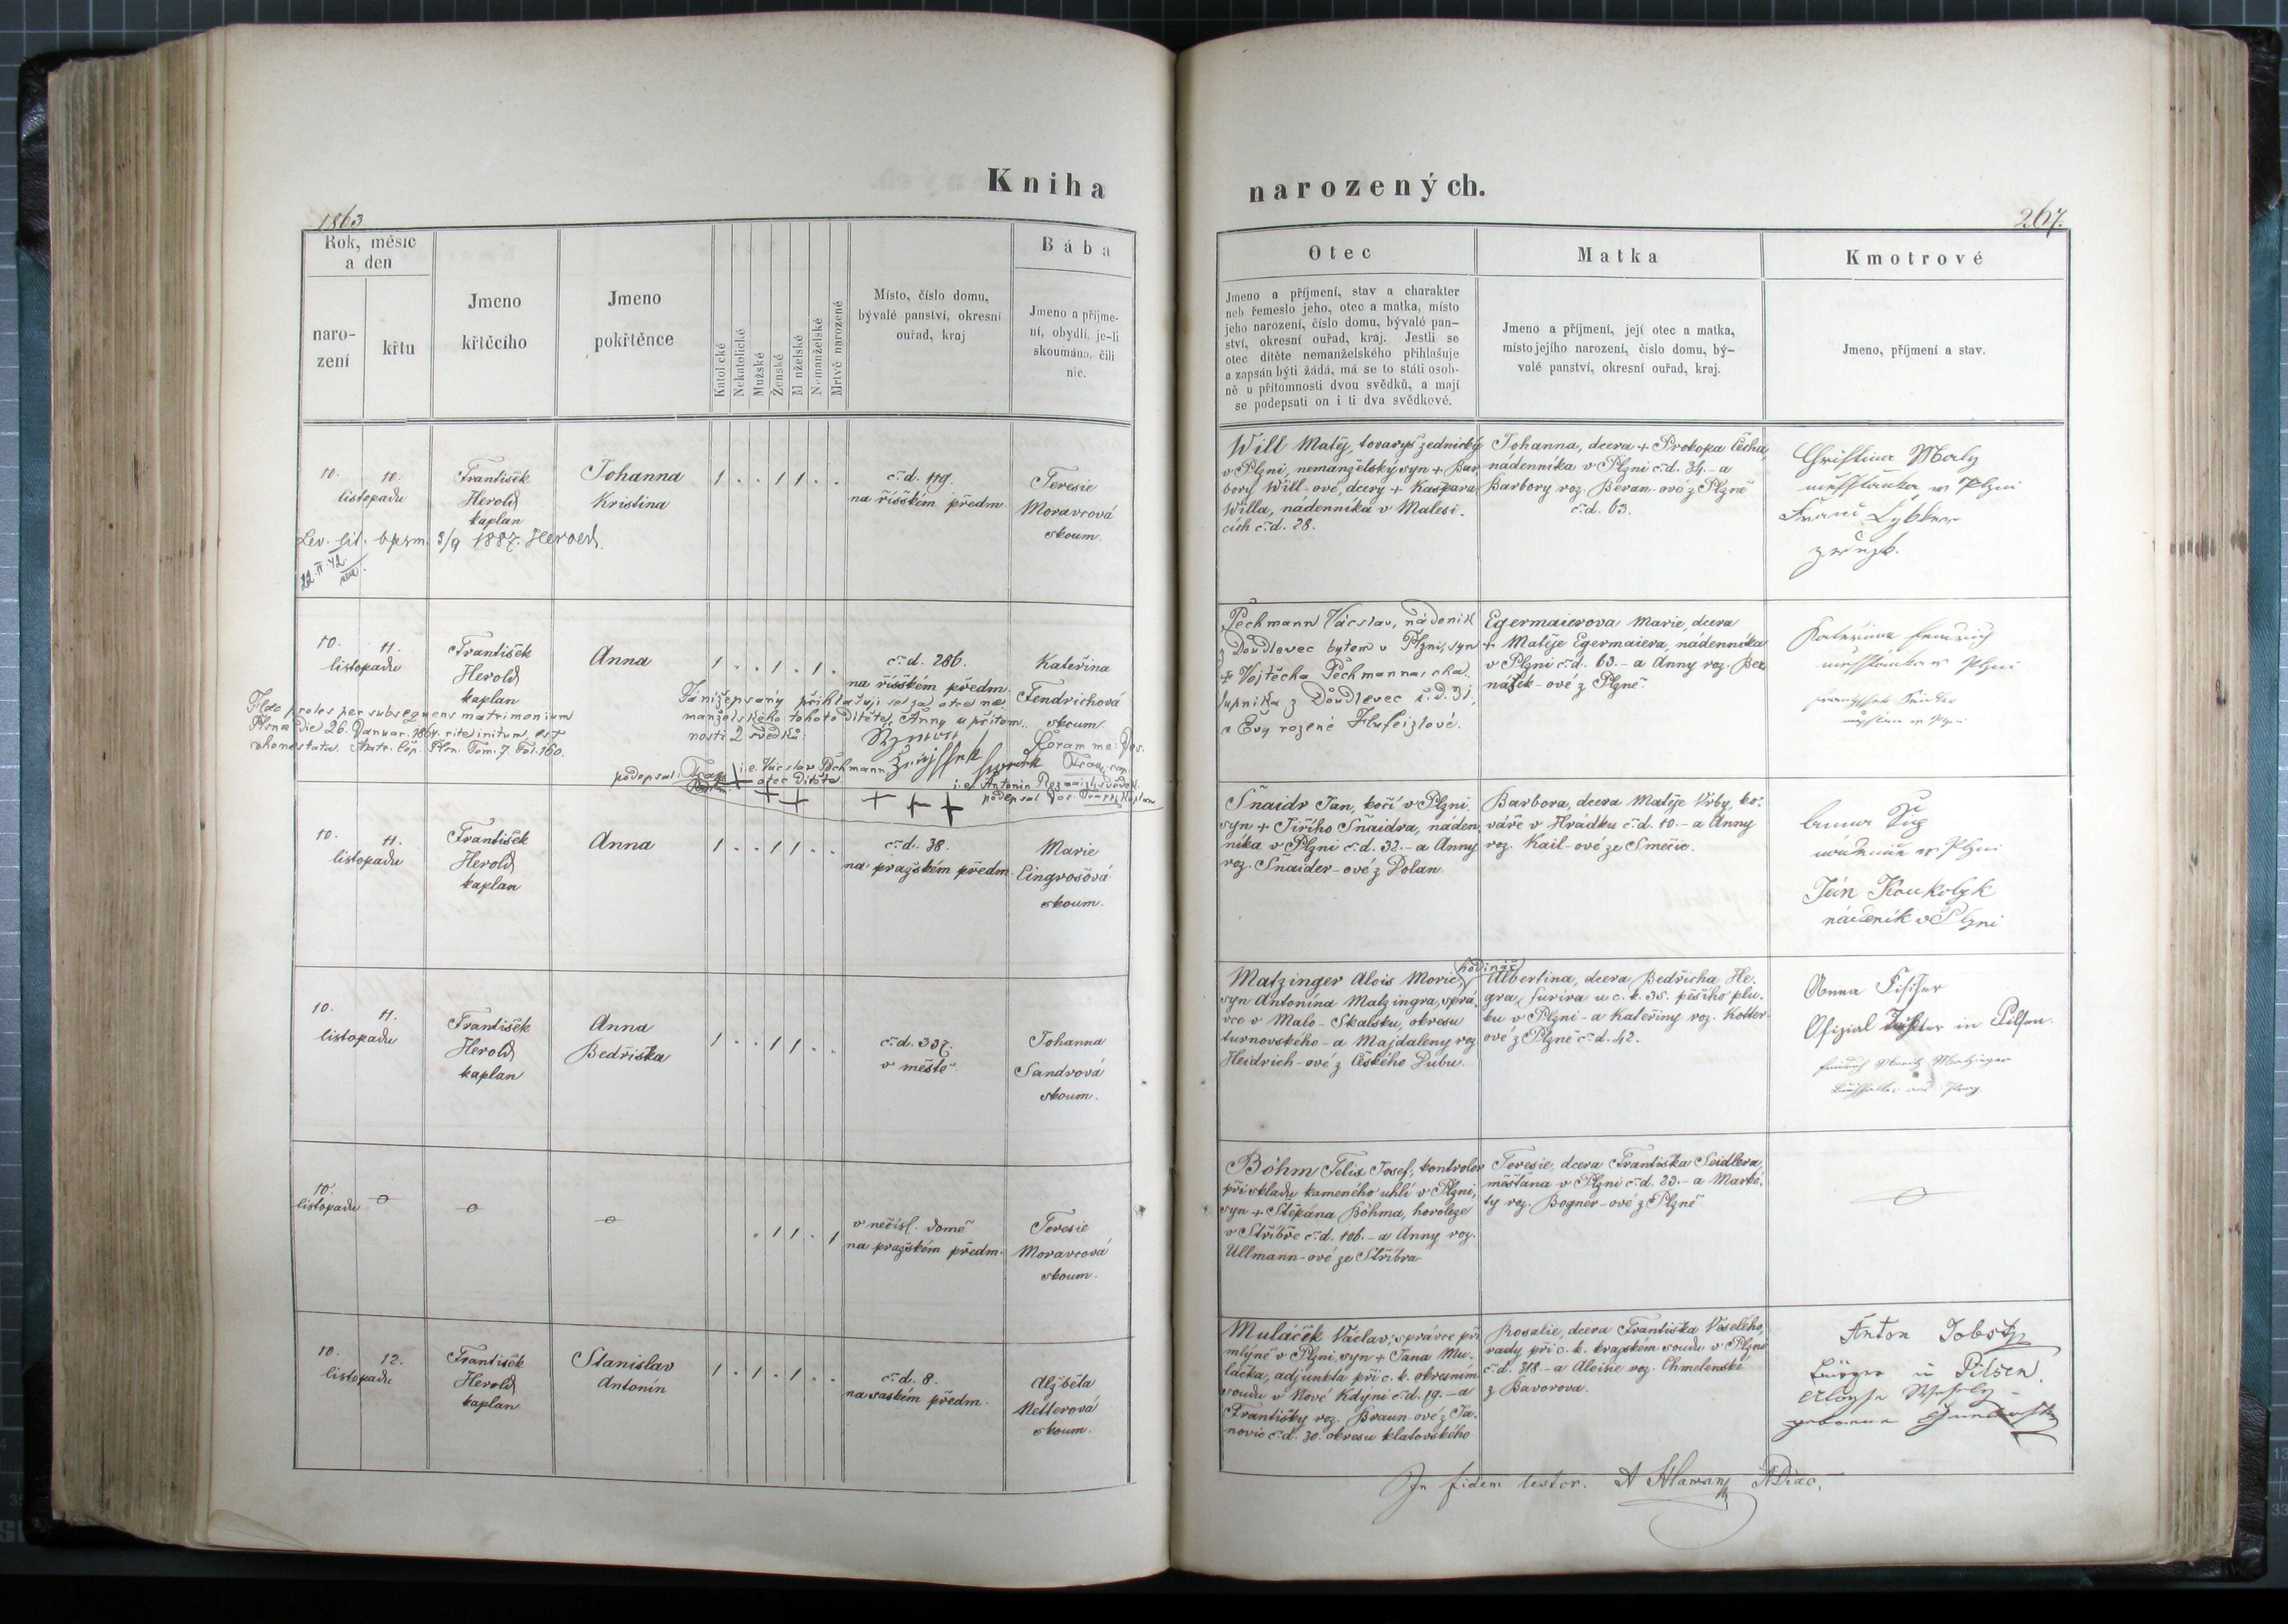 Kniha
narozených.
1863
267.
Rok, měsíc
a den
naro-
zení
křtu
Jmeno
křtícího
Jmeno
pokřtěnce
Katolické
Nekatolické
Mužské
Ženské
Manželské
Nemanželské
Mrtvě narozené
Místo, číslo domu,
bývalé panství, okresní
ouřad, kraj
Bába
Jmeno a příjme-
ní, obydlí, je-li
skoumána, čili
nic.
Otec
Jmeno a příjmení, stav a charakter
neb řemeslo jeho, otec a matka, místo
jeho narození, číslo domu, bývalé pan-
ství, okresní ouřad, kraj. Jestli se
otec dítěte nemanželského přihlašuje
a zapsán býti žádá, má se to státi osob-
ně u přítomnosti dvou svědků, a mají
se podepsati on i ti dva svědkové.
Matka
Jmeno a příjmení, její otec a matka,
místo jejího narození, číslo domu, bý-
valé panství, okresní ouřad, kraj.
Kmotrové
Jmeno, příjmení a stav.
10. 10.
listopadu
František
Herold
kaplan
Johanna
Kristina
1 . . 1 1 . .
č. d. 119.
na říšském předm.
Teresie
Moravcová
skoum.
Lev. lit. bpsm. 3/9 1887. Herold.
22. IV. 42
Will Matěj, tovaryš zednický
v Plzni, nemanželský syn + Bar
bory Will-ové, dcery + Kašpara
Willa, nádenníka v Malesi-
cích č. d. 28.
Johanna, dcera + Prokopa Čecha,
nádenníka v Plzni č. d. 34. - a
Barbory roz. Beran-ové z Plzně
č. d. 63.
Christina Maly
w Plzni
10. 11.
listopadu
František
Herold
kaplan
Anna
1 . . 1 . 1 .
č. d. 286.
na říšském předm.
Kateřina
Fendrichová
skoum.
Haec proles per subsequens matrimonium
Plsnae die 26. Januar. 1864. rite initum, est
cohonestata. Matr. Cop. Plsn. Tom. 7. Fol. 160.
Tanížepsaný přihlašuji se za otce ne-
manželského tohoto dítěte, Anny u přítom-
nosti 2 svědků:
Coram me:
podepsal:
i. e. Václav Pechmann
otec dítěte.
i. e. Antonín
podepsal
Pechmann Václav, nádeník
z Doudlevec bytem v Plzni, syn
+ Vojtěcha Pechmanna, cha-
lupníka z Doudlevec č. d. 31,
a Evy rozené Hufeizlové.
Egermaierova Marie, dcera
+ Matěje Egermaiera, nádenníka
v Plzni č. d. 63. - a Anny roz. Ber
nášek-ové z Plzně.
10. 11.
listopadu
František
Herold
kaplan
Anna
1 . . 1 1 . .
č. d. 38.
na pražském předm.
Marie
Lingrošová
skoum.
Šnaidr Jan, kočí v Plzni,
syn + Jiřího Šnaidra, náden-
níka v Plzni č. d. 32. - a Anny
roz. Šnaider-ové z Dolan.
Barbora, dcera Matěje Vrby, ko-
váře v Hrádku č. d. 10. - a Anny
roz. Kail-ové ze Smečic.
Ján Koukolyk
nádeník v Plzni
10. 11.
listopadu
František
Herold
kaplan
Anna
Bedřiška
1 . . 1 1 . .
č. d. 337.
v městě
Johanna
Sandrová
skoum.
hodinář
Matzinger Alois Moric,
syn Antonína Matzingra, sprá-
vce v Malo-Skalsku, okresu
turnovského - a Majdaleny roz.
Heidrich-ové z Českého Dubu.
Albertina, dcera Bedřicha He-
gra, furira u c. k. 35. pěšího plu-
ku v Plzni - a Kateřiny roz. Kotter-
ové z Plzně č. d. 42.
Anna Fischer
Ofizial in Pilsen.
10.
listopadu
. 1 1 . 1
v nečísl. domě
na pražském předm.
Teresie
Moravcová
skoum.
Böhm Felix Josef, kontrolor
při skladu kameného uhlí v Plzni,
syn + Štěpána Böhma, horolezce
v Stříbře č. d. 106. - a Anny roz.
Ullmann-ové ze Stříbra.
Teresie, dcera Františka Seidlera,
měšťana v Plzni č. d. 23. - a Marké-
ty roz. Bogner-ové z Plzně
10. 12.
listopadu
František
Herold
kaplan
Stanislav
Antonín
1 . 1 . 1 . .
č. d. 8.
na saském předm.
Alžběta
Netterová
skoum.
Muláček Václav, správce při
mlýně v Plzni, syn + Jana Mu-
láčka, adjunkta při c. k. okresním
soudu v Nové Kdýni č. d. 19. - a
Františky roz. Braun-ové z Ja-
novic č. d. 30. okresu klatovského
Rosalie, dcera Františka Veselého,
rady při c. k. krajském soudu v Plzni
č. d. 318. - a Aloisie roz. Chmelenské
z Bavorova.
Anton Jobst
Bürger in Pilsen.
In fidem testor. A Hlawan ADiac.